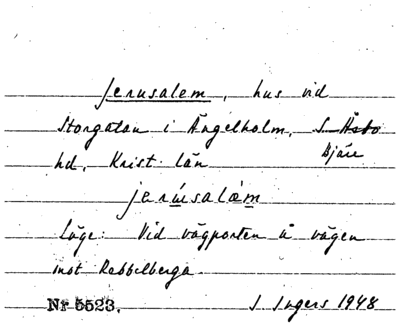 Jerusalem, hus vid
Storgatan i Ängelholm, S. Åsbo
Bjäre
hd, Krist. län
jerúsalàm
Läge: Vid vägporten å vägen
mot Rebbelberga.
Nr 5523. I Ingers 1948